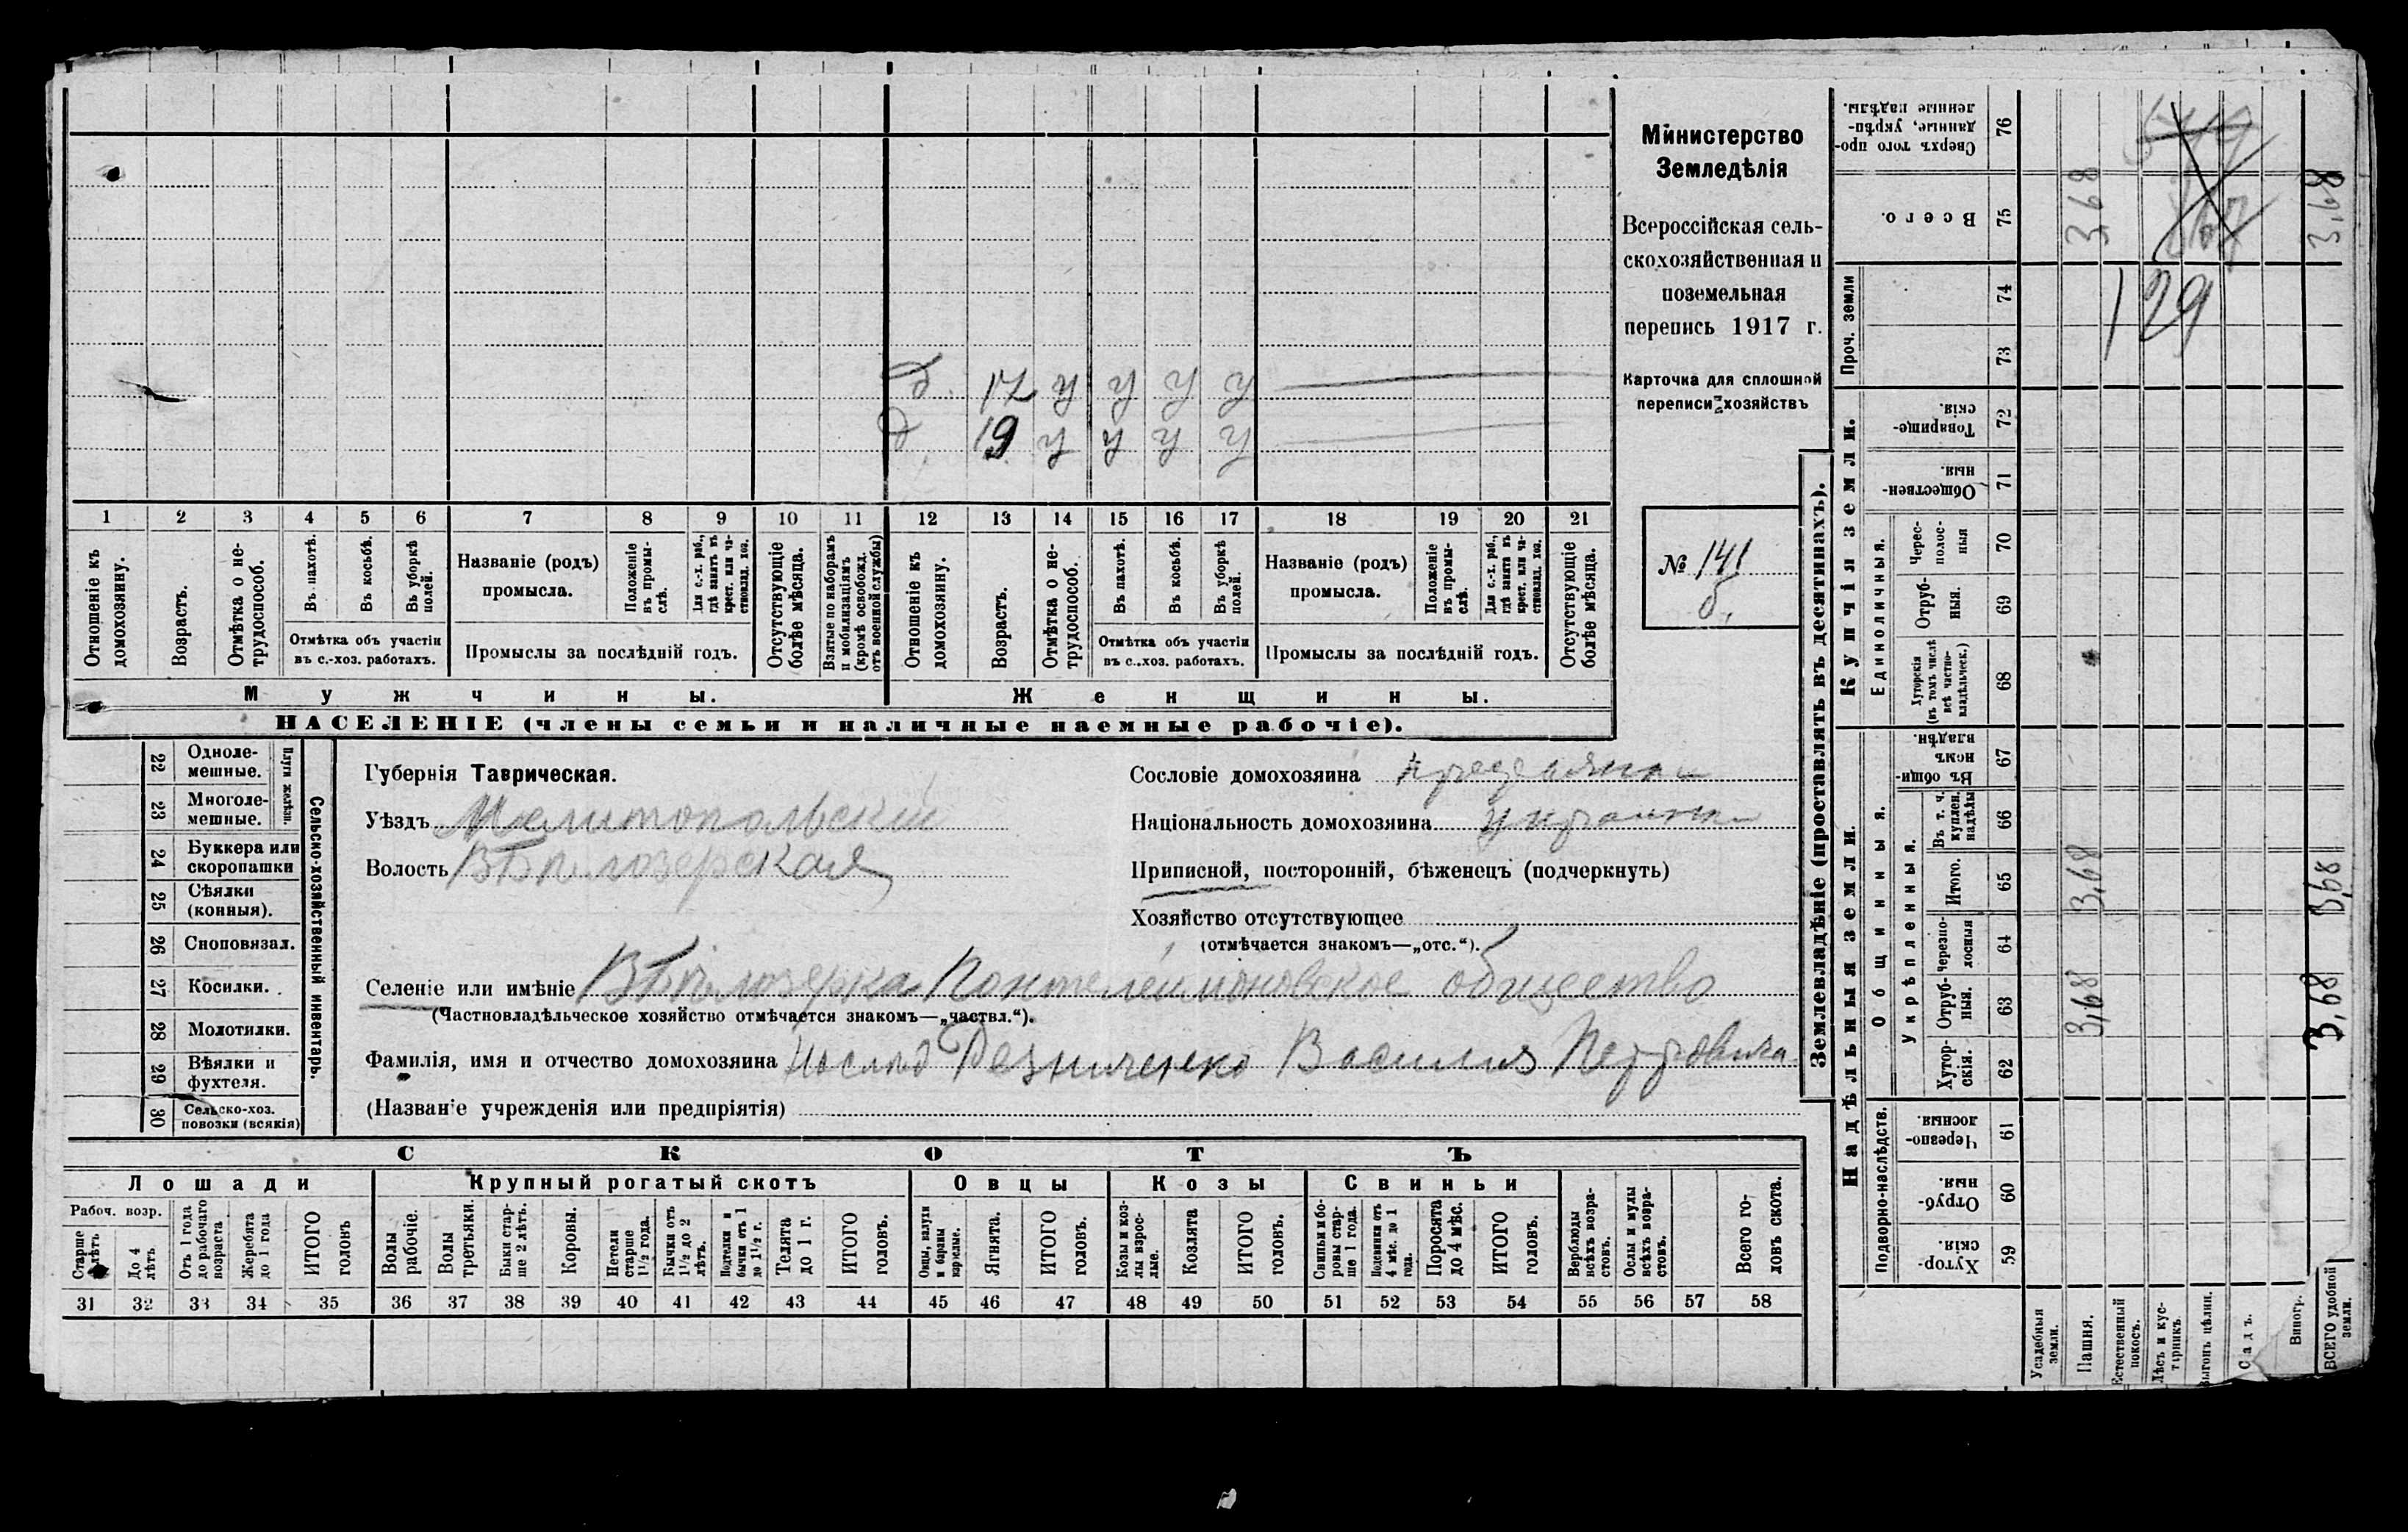 Министерство
Земледѣлія
Всероссійская сель-
скохозяйственная и
поземельная
перепись 1917 г.
Карточка для сплошной
переписи хозяйствъ
№ 141
б.
д. 17 у у у у
д. 19 у у у у
1 2 3 4 5 6 7 8 9 10 11 12 13 14 15 16 17 18 19 20 21
Отношеніе къ домохозяину.
Возрастъ.
Отмѣтка о не-трудоспособ.
Въ пахотѣ.
Въ косьбѣ.
Въ уборкѣ полей.
Отмѣтка объ участіи
въ с.-хоз. работахъ.
Названіе (родъ)
промысла.
Положеніе въ промы-слѣ.
Для с.-х. раб., гдѣ занятъ въ крест. или ча-стновлад. хоз.
Промыслы за послѣдній годъ.
Отсутствующіе болѣе мѣсяца.
Взятые по наборамъ и мобилизаціямъ (кромѣ освобожд. отъ военной службы)
Отношеніе къ домохозяину.
Возрастъ.
Отмѣтка о не-трудоспособ.
Въ пахотѣ.
Въ косьбѣ.
Въ уборкѣ полей.
Отмѣтка объ участіи
въ с.-хоз. работахъ.
Названіе (родъ)
промысла.
Положеніе въ промы-слѣ.
Для с.-х. раб., гдѣ занята въ крест. или ча-стновлад. хоз.
Промыслы за послѣдній годъ.
Отсутствующіе болѣе мѣсяца.
Мужчины. Женщины.
НАСЕЛЕНІЕ (члены семьи и наличные наемные рабочіе).
Сельско-хозяйственный инвентарь.
Плуги желѣзн.
22 Одноле-мешные.
23 Многоле-мешные.
24 Буккера или скоропашки
25 Сѣялки (конныя).
26 Сноповязал.
27 Косилки.
28 Молотилки.
29 Вѣялки и фухтеля.
30 Сельско-хоз. повозки (всякія)
Губернія Таврическая.
Уѣздъ Мелитопольскій
Волость В Бѣлозерская
Сословіе домохозяина
Національность домохозяина
Приписной, посторонній, бѣженецъ (подчеркнуть)
Хозяйство отсутствующее
(отмѣчается знакомъ—„отс.“).
Селеніе или имѣніе В Бѣлозерка Пантелеимоновское общество
(Частновладѣльческое хозяйство отмѣчается знакомъ—„частвл.“).
Фамилія, имя и отчество домохозяина Резниченко Василия Петровича
(Названіе учрежденія или предпріятія)
СКОТЪ
Лошади Крупный рогатый скотъ Овцы Козы Свиньи
Рабоч. возр.
Старше 4 лѣтъ
До 4 лѣтъ
Отъ 1 года до рабочаго возраста
Жеребята до 1 года
ИТОГО головъ
Волы рабочіе.
Волы третьяки.
Быки стар-ше 2 лѣтъ.
Коровы.
Нетели старше 1½ года.
Бычки отъ 1½ до 2 лѣтъ.
Подтелки и бычки отъ 1 до 1½ г.
Телята до 1 г.
ИТОГО головъ.
Овцы, валухи и бараны взрослые.
Ягнята.
ИТОГО головъ.
Козы и коз-лы взрос-лые.
Козлята
ИТОГО головъ.
Свиньи и бо-ровы стар-ше 1 года.
Подсвинки отъ 4 мѣс. до 1 года.
Поросята до 4 мѣс.
ИТОГО головъ.
Верблюды всѣхъ возра-стовъ.
Ослы и мулы всѣхъ возра-стовъ.
Всего го-ловъ скота.
31 32 33 34 35 36 37 38 39 40 41 42 43 44 45 46 47 48 49 50 51 52 53 54 55 56 57 58
Землевладѣніе (проставлять въ десятинахъ).
Надѣльныя земли. Купчія земли. Проч. земли
Подворно-наслѣдств. Общинныя. Укрѣпленныя. Единоличныя.
Хутор-скія. 59
Отруб-ныя. 60
Черезпо-лосныя. 61
Хутор-скія. 62
Отруб-ныя. 63
Черезпо-лосныя 64
Итого. 65
Въ т. ч. куплен. надѣлы 66
Въ общи-номъ владѣн. 67
Хуторскія (въ томъ числѣ всѣ частно-владѣльческ.) 68
Отруб-ныя. 69
Черес-полос-ныя 70
Обществен-ныя. 71
Товарище-скія. 72
73
74
Всего. 75
Сверхъ того про-данные, укрѣп-ленные надѣлы. 76
Усадебныя земли.
Пашня. 3,68 3,68 3,68
Естественный покосъ.
Лѣсъ и кус-тарникъ.
Выгонъ цѣлин.
Садъ.
Виногр.
ВСЕГО удобной земли. 3,68 3,68 3,68
129